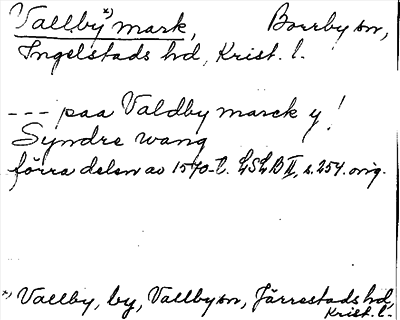 Vallby*) mark, Borrby sn,
Ingelstads hd, Krist. l.
--- paa Valdby marck y!
Syndre wang
förra delen av 1570-t. LSLB II, s. 254. orig.
*) Vallby, by, Vallby sn, Järrestads hd,
Krist. l.